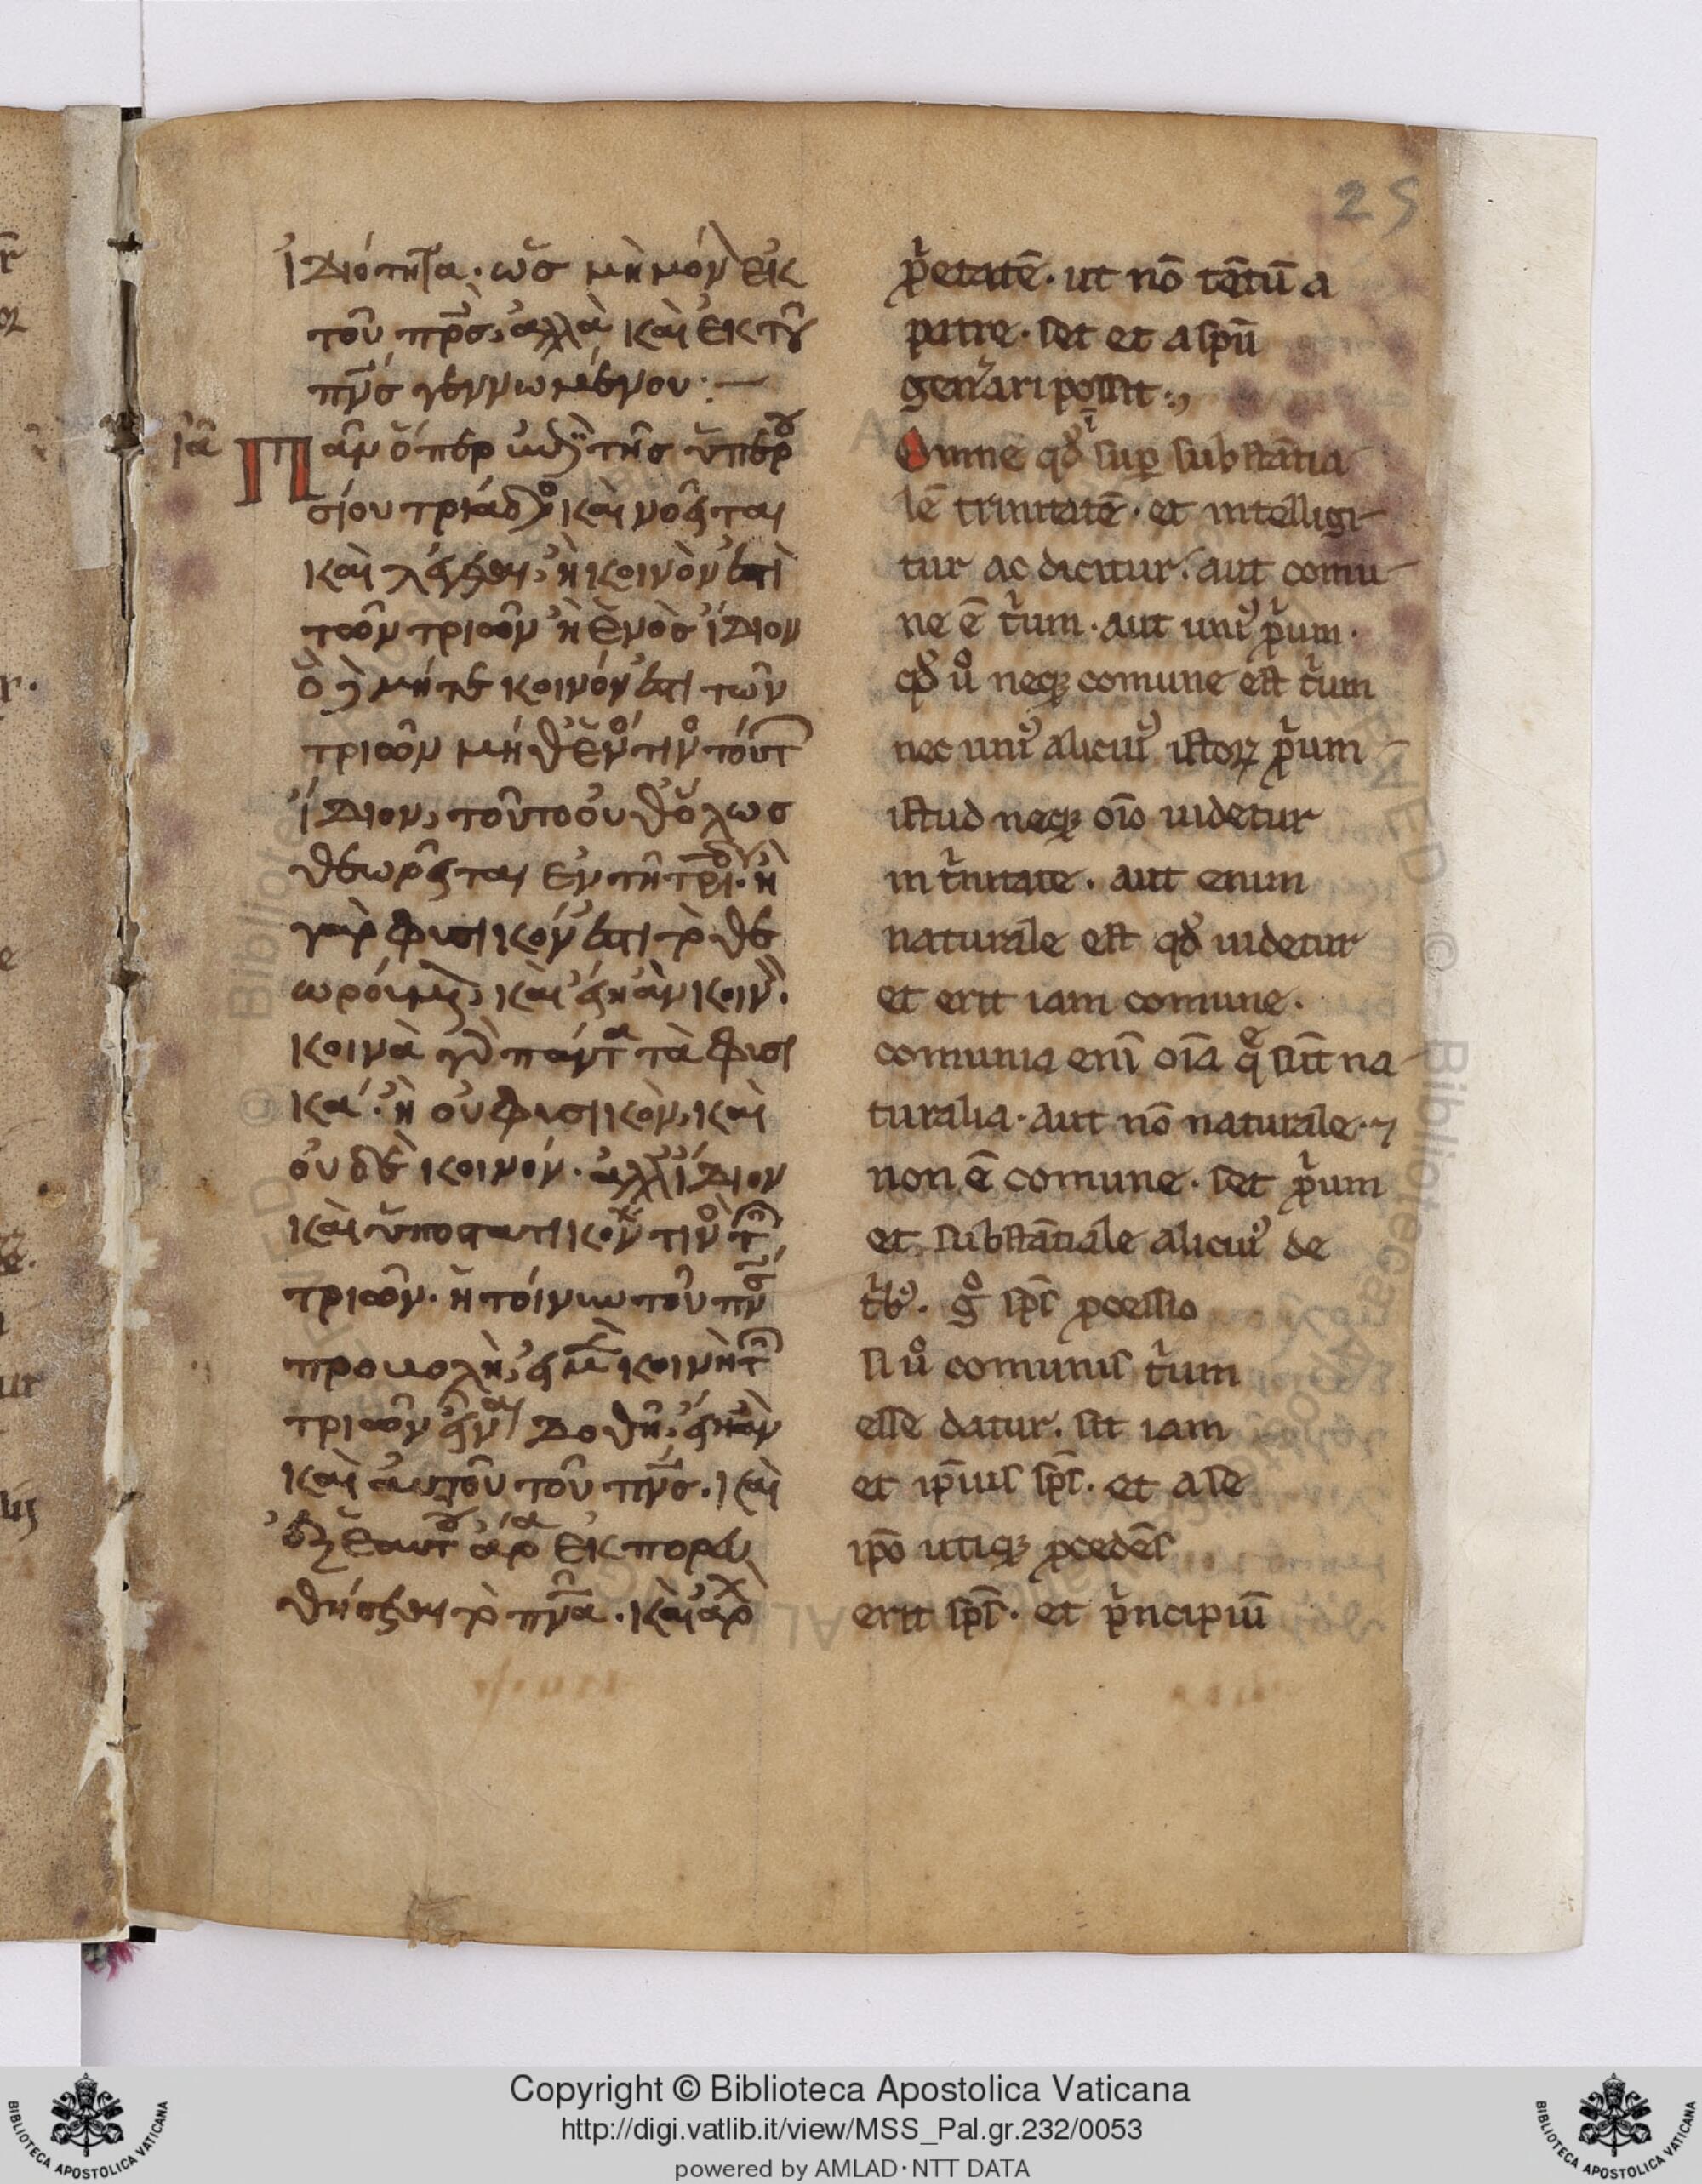 25
ἰδιότητα· ὡς μὴ μόν ἐκ
τοῦ πρ̅σ, ἀλλὰ καὶ ἐκ τοῦ
πν̅σ γεννωμένου:—
ια
Πᾶν ὅπερ ἐπὶ τῆς ὑπερου
σίου τριάδος καὶ νοεῖται
καὶ λέγεται, ἢ κοινόν ἐστι
τῶν τριῶν ἢ ἑνὸς ἴδιον
ὃ δὲ μήτε κοινόν ἐστι τῶν
τριῶν μήθ' ἑνός τινος τούτ
ἴδιον, τοῦτο οὐθ' ὅλως
θεωρεῖται ἐν τῇ τριάδι· ἢ
γὰρ φυσικόν ἐστι τὸ θε
ωρούμενον, καὶ εἴη ἂν κοιν·
κοινὰ γὰρ πάντα τὰ φυσι
κά· ἢ οὐ φυσικὸν, καὶ
οὐδὲ κοινόν· ἀλλ' ἴδιον
καὶ ὑποστατικόν τινος τῶν
τριῶν· ἡ τοίνυν τοῦ πν̅σ
προβολὴ, εἰ μὲν κοινὴ τῶν
τριῶν εἶναι δοθῇ, εἴη ἂν
καὶ αὐτοῦ τοῦ πν̅σ· καὶ
ἐξ ἑαυτοῦ ἄρα ἐκπορευ
θήσεται τὸ πν̅α· καὶ ἀρχ
p̍etatē· ut nō tātū a
patre· set et a sp̄u
gen̍ari possit:,
Omne qd̍ i sup̱ substātia
lē trinitatē· et intelligi-
tur ac dicitur· aut comu-
ne ē t̍um· aut uni⁹ p̍um·
qd̍ u̇ neq; comune est t̍um
nec uni⁹ alicui⁹ istoꝝ p̍um
istud neq; oīo uidetur
in t̍nitate· aut enim
naturale est qd̍ uidetur
et erit iam comune·
comunia enī oīa q̄ sūt na-
turalia· aut nō naturale· ⁊
non ē comune· set p̍um
et substātiale alicui⁹ de
t̍b⁹· g̊ sp̄s p̱cessio
si u̇ comunis t̍um
esse datur· sit iam
et ip̄ius sp̄s· et a se
ip̄o utiq; p̱cedēs
erit sp̄s· et p̍ncipiū
Copyright © Biblioteca Apostolica Vaticana
http://digi.vatlib.it/view/MSS_Pal.gr.232/0053
powered by AMLAD·NTT DATA
BIBLIOTECA APOSTOLICA VATICANA
BIBLIOTECA APOSTOLICA VATICANA